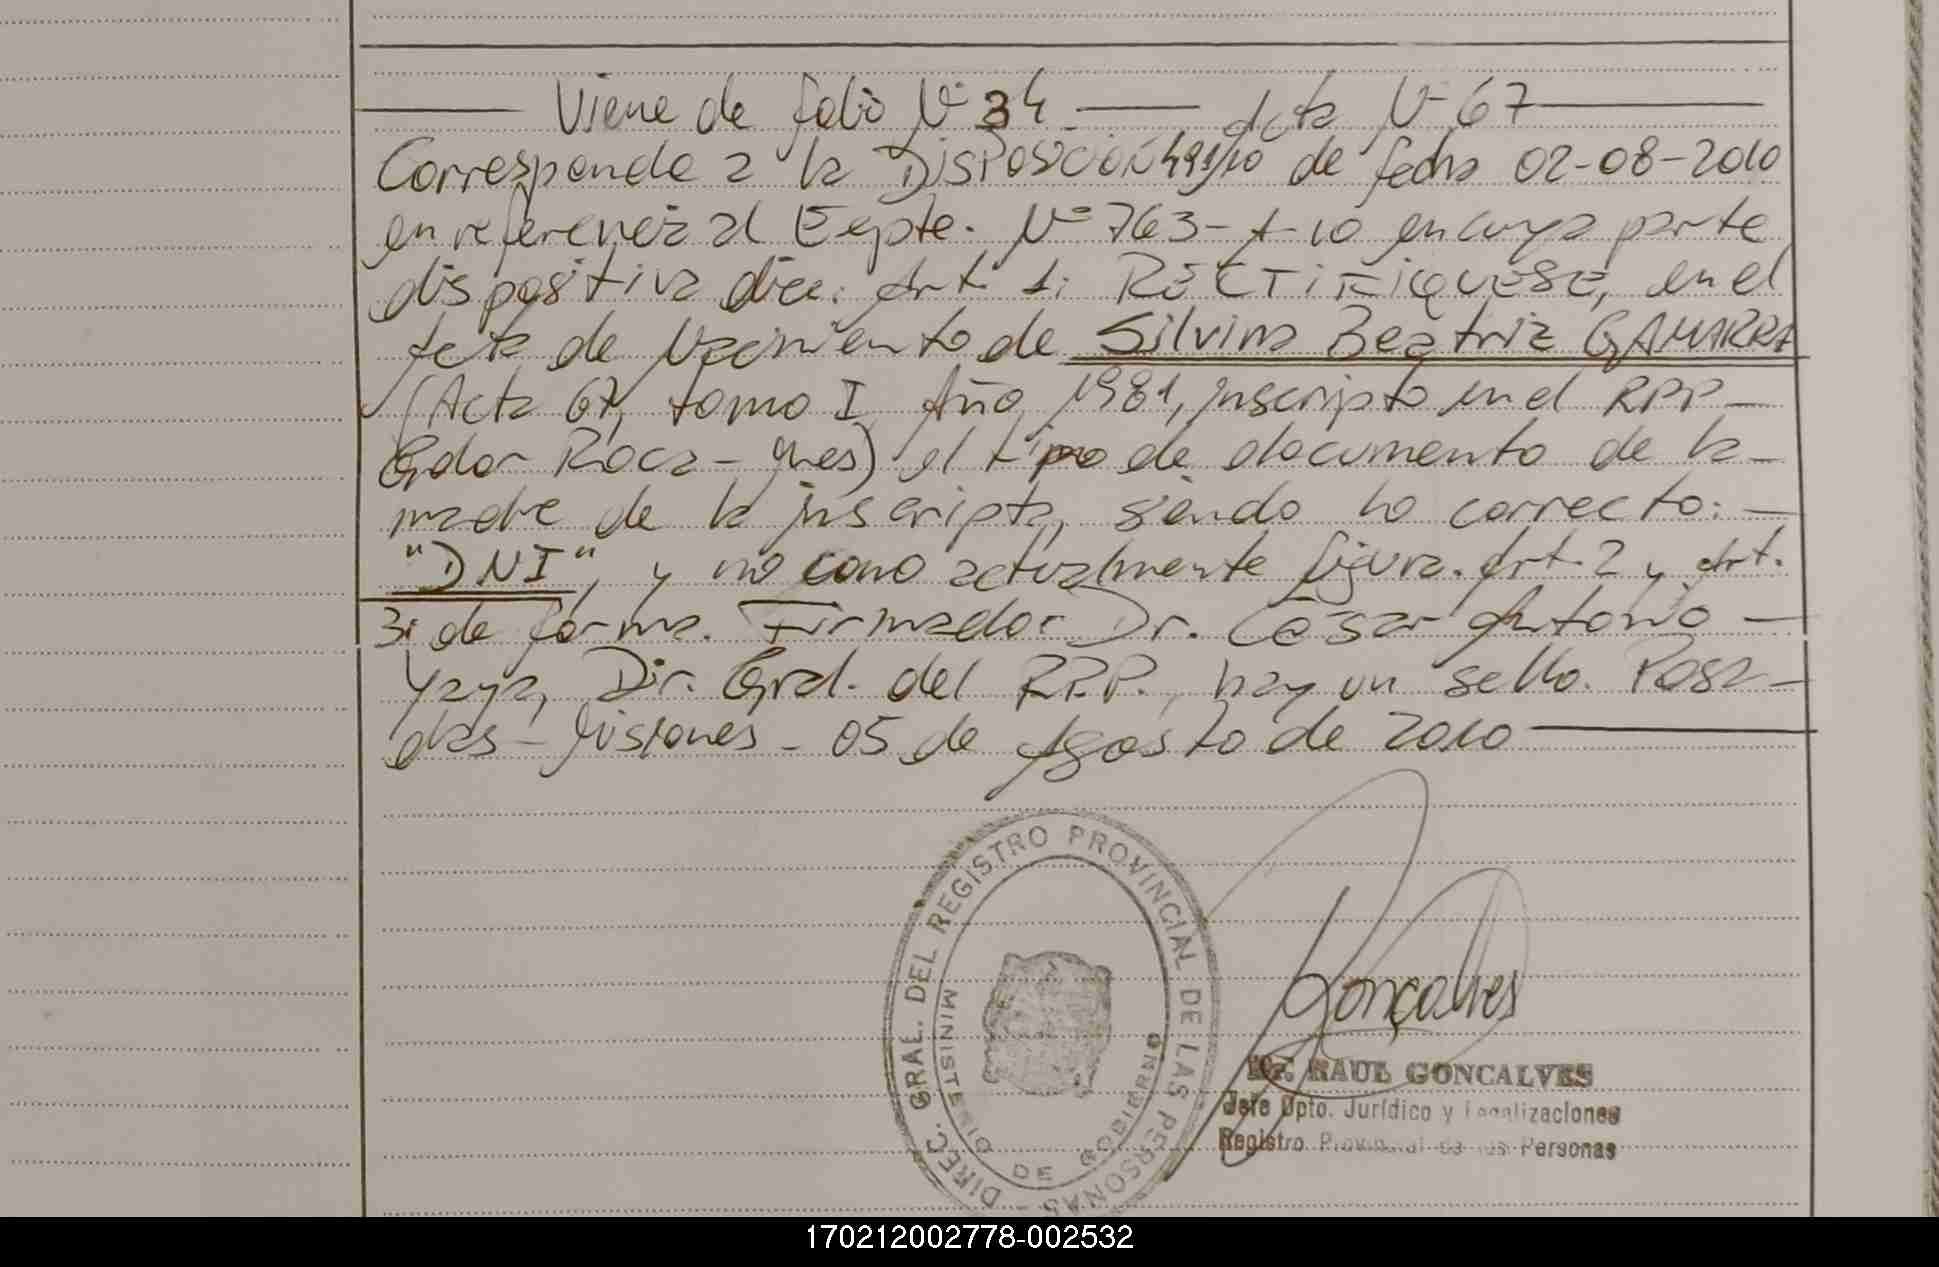 Viene de folio Nº 34 Acta Nº 67
Corresponde a la DISPOSICIÓN 491/10 de fecha 02-08-2010
en referencia al Expte. Nº 763-t-10 en cuya parte
dispositiva dice: Art. 1: RECTIFIQUESE, en el
Acta de Nacimiento de Silvina Beatriz GAMARRA
(Acta 67, tomo I, Año 1981, inscripto en el RPP-
Gdor Roca - Mnes) el tipo de documento de la-
madre de la inscripta, siendo lo correcto: -
"DNI", y no como actualmente figura. Art. 2 y Art.
3: de forma. Firmador Dr. César Antonio -
Yaya, Dir. Gral. del R.P.P., hay un sello. Posa-
das - Misiones - 05 de Agosto de 2010
DIREC. GRAL. DEL REGISTRO PROVINCIAL DE LAS PERSONAS
MINISTERIO DE GOBIERNO
Goncalves
Dr. RAUL GONCALVES
Jefe Dpto. Jurídico y Legalizaciones
Registro Provincial de las Personas
170212002778-002532